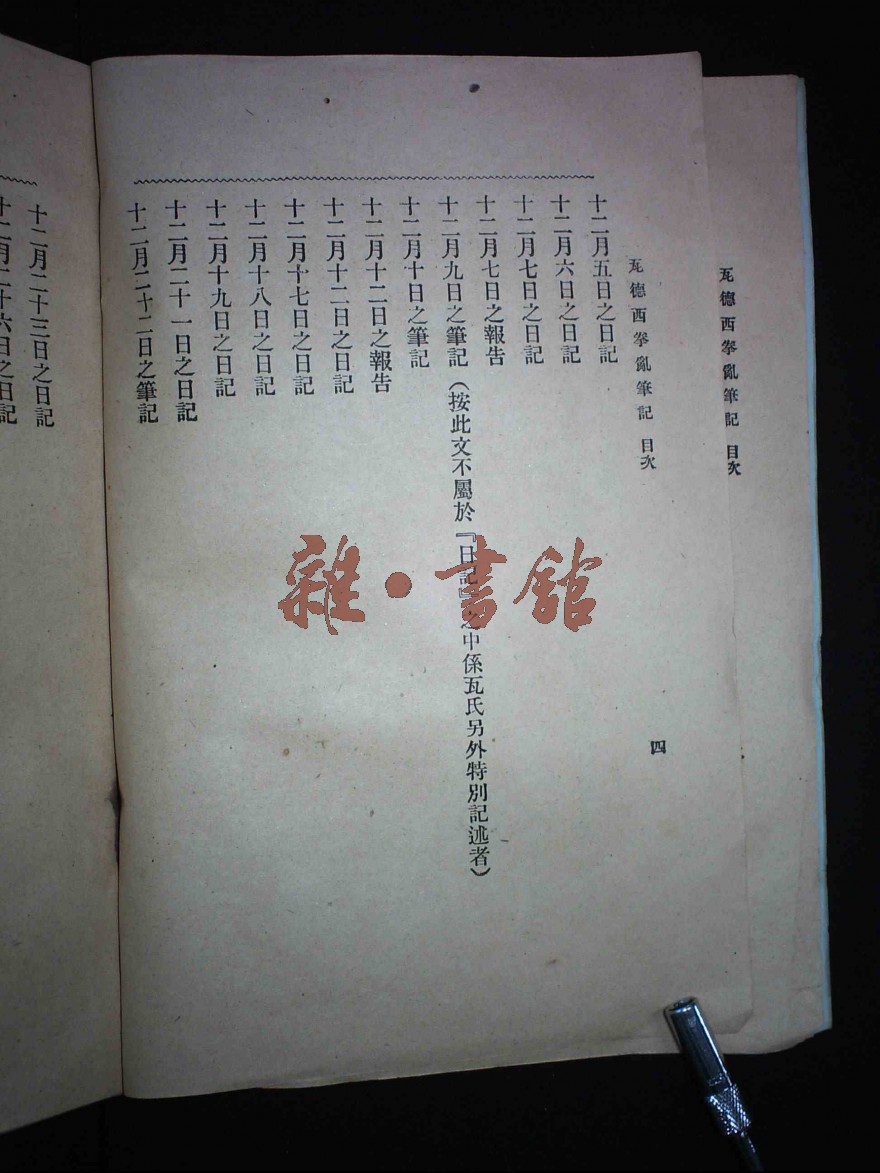 瓦德西拳亂筆記 目次
瓦德西拳亂筆記 目次 四
十二月五日之日記
十二月六日之日記
十二月七日之日記
十二月七日之報告
十二月九日之筆記(按此文不屬於『日記』之中係瓦氏另外特別記述者)
十二月十日之筆記
十二月十二日之報告
十二月十二日之日記
十二月十七日之日記
十二月十八日之日記
十二月十九日之日記
十二月二十一日之日記
十二月二十二日之筆記
十二月二十三日之日記
十二月二十六日之日記
雜·書館